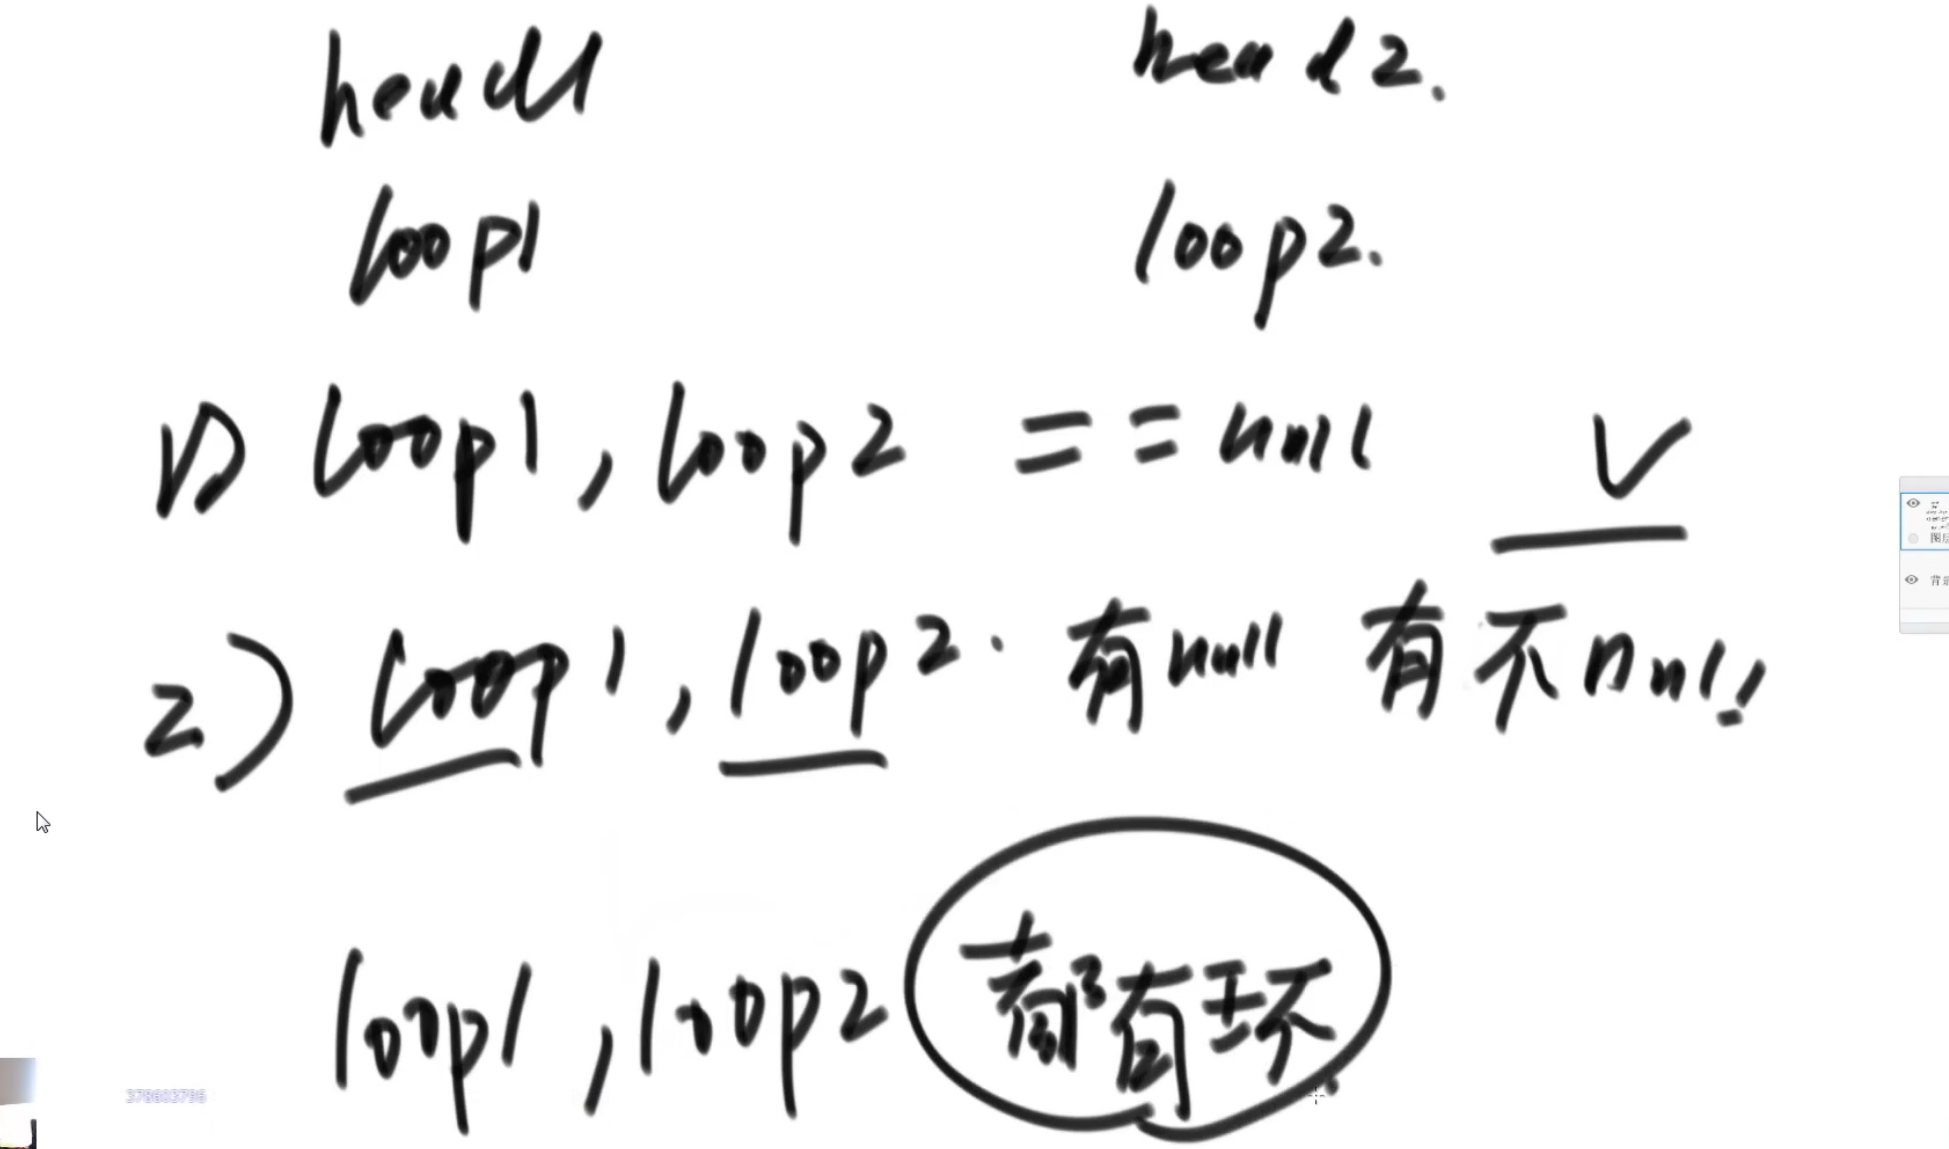 head1 head2.
loop1 loop2.
1) loop1, loop2 == null √
2) loop1, loop2. 有null 有不null
loop1, loop2 都有环
378603796